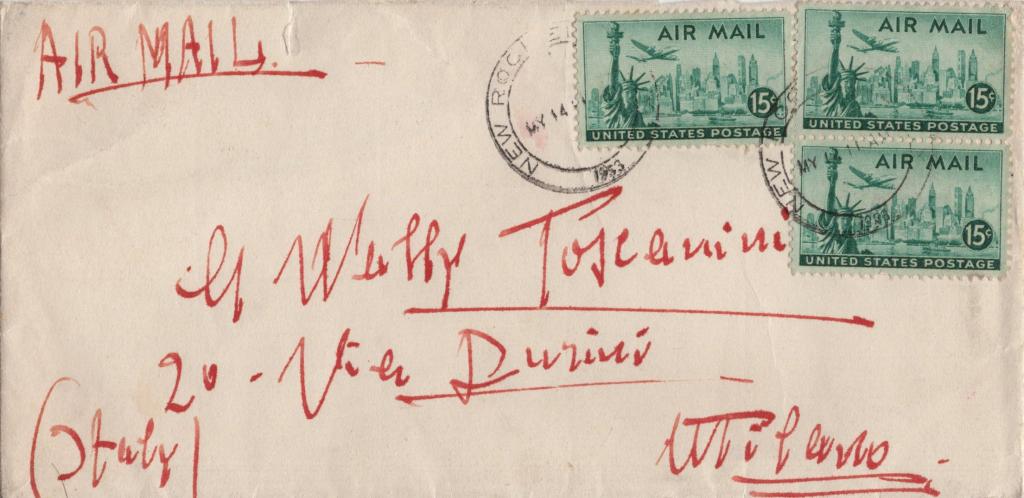 AIR MAIL.
AIR MAIL
15¢
UNITED STATES POSTAGE
AIR MAIL
15¢
UNITED STATES POSTAGE
AIR MAIL
15¢
UNITED STATES POSTAGE
NEW ROC
MY 14
1953
NEW
MY
Wally Toscanini
20 - Via Durini
(Italy)
Milano.